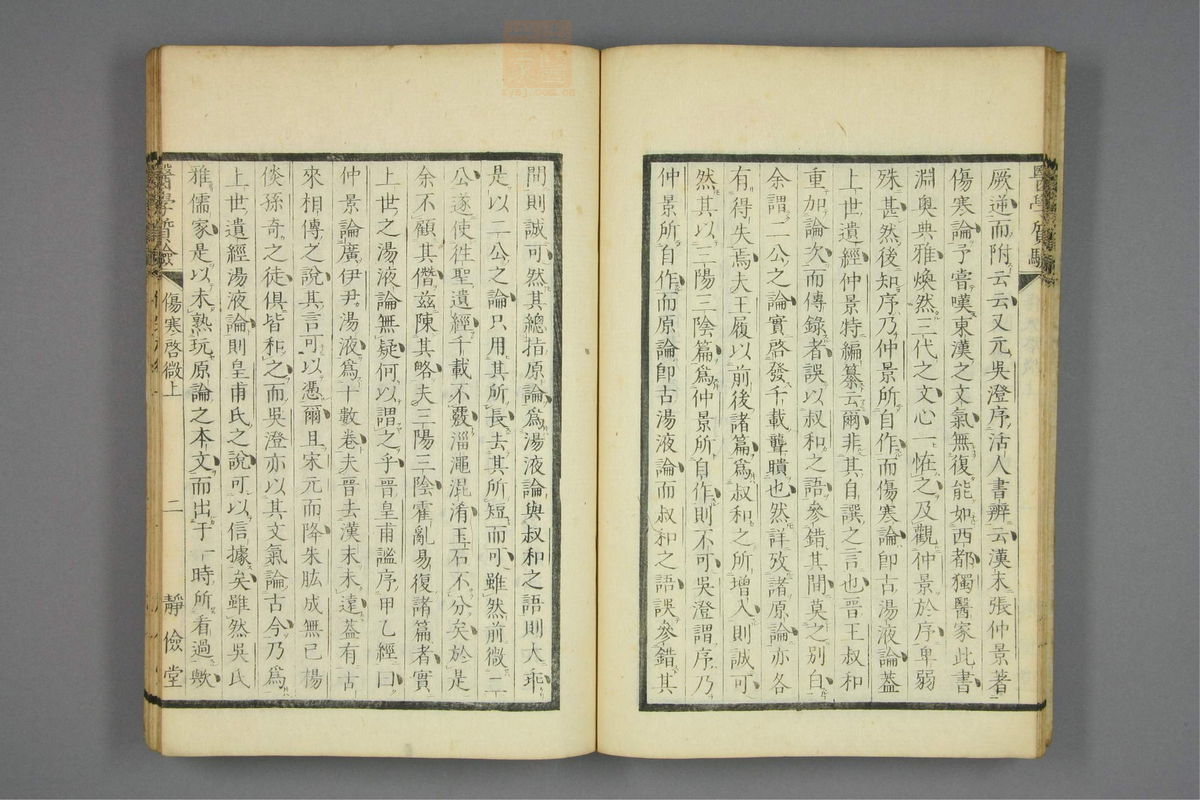 厥逆而附云云又元吳澄序活人書辨云漢末張仲景著
傷寒論予嘗嘆東漢之文氣無復能如西都獨醫家此書
淵奧典雅煥然三代之文心一恠之及觀仲景於序卑弱
殊甚然後知序乃仲景所自作而傷寒論卽古湯液論蓋
上世遺經仲景特編纂云爾非其自譔之言也晉王叔和
重加論次而傳錄者誤以叔和之語參錯其間莫之別白
余謂二公之論實啓發千載聾聵也然詳攷諸原論亦各
有得失焉夫王履以前後諸篇爲叔和之所增入則誠可
然其以三陽三陰篇爲仲景所自作則不可吳澄謂序乃
仲景所自作而原論卽古湯液論而叔和之語誤參錯其
醫學質驗
間則誠可然其總指原論爲湯液論與叔和之語則大乖
是以二公之論只用其所長去其所短而可雖然前微二
公遂使徃聖遺經千載不覈淄澠混淆玉石不分矣於是
余不顧其僭玆陳其略夫三陽三陰霍亂易復諸篇者實
上世之湯液論無疑何以謂之乎晉皇甫謐序甲乙經曰
仲景論廣伊尹湯液爲十數卷夫晉去漢末未遠蓋有古
來相傳之說其言可以憑爾且宋元而降朱肱成無已楊
倓孫奇之徒俱皆和之而吳澄亦以其文氣論古今乃爲
上世遺經湯液論則皇甫氏之說可以信據矣雖然吳氏
雅儒家是以未熟玩原論之本文而出于一時所看過歟
醫學質驗 傷寒啓微上 二 靜儉堂